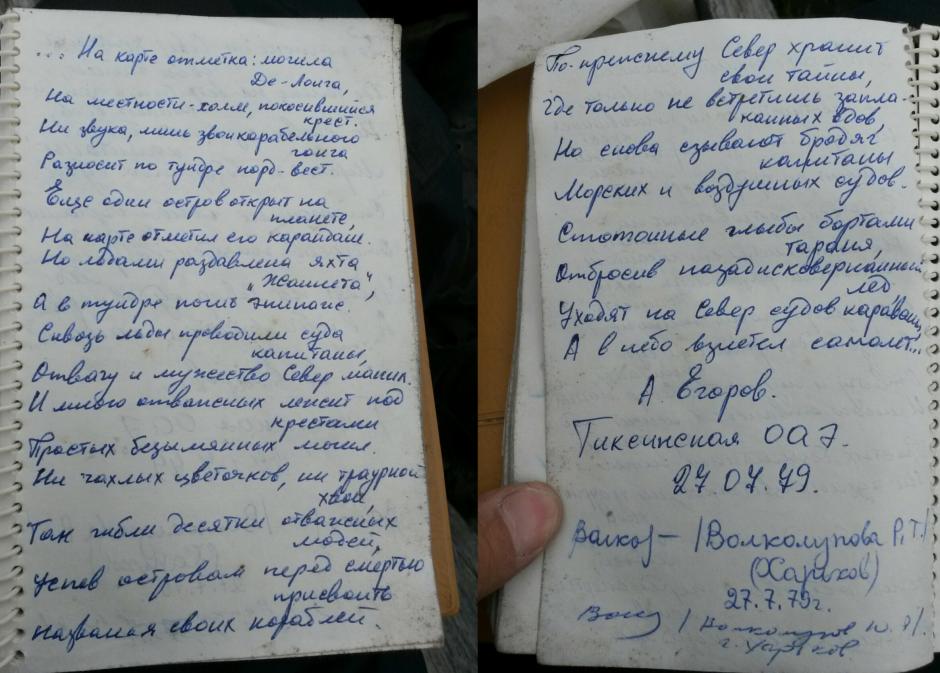 ... На карте отметка: могила
Де-Лонга,
На местности - холм, покосившийся
крест.
Ни звука, лишь звон карабельного
гонга
Разносит по тундре норд-вест.
Еще один остров открыт на
планете,
На карте отметил его карандаш.
Но льдами раздавлена яхта
"Жаннета",
А в тундре погиб экипаж.
Сквозь льды проводили суда
капитаны,
Отвагу и мужество Север манил.
И много отважных лежит под
крестами
Простых безымянных могил.
Ни чахлых цветочков, ни траурной
хвои,
Там гибли десятки отважных
людей,
Успев островам перед смертью
присвоить
Названия своих кораблей.
По-прежнему Север хранит
свои тайны,
Где только не встретишь запла-
канных вдов,
Но снова сзывают бродяг
капитаны
Морских и воздушных судов.
Стотонные глыбы бортами
тараня,
Отбросив назад исковерканный
лед,
Уходят на Север судов караваны,
А в небо взлетел самолет...
А. Егоров.
Тиксинская ОАЭ.
27.07.79.
/Волколупова Р.Т./
(Харьков)
27.7.79г.
/ Волколупов Ю. /.
г. Харьков